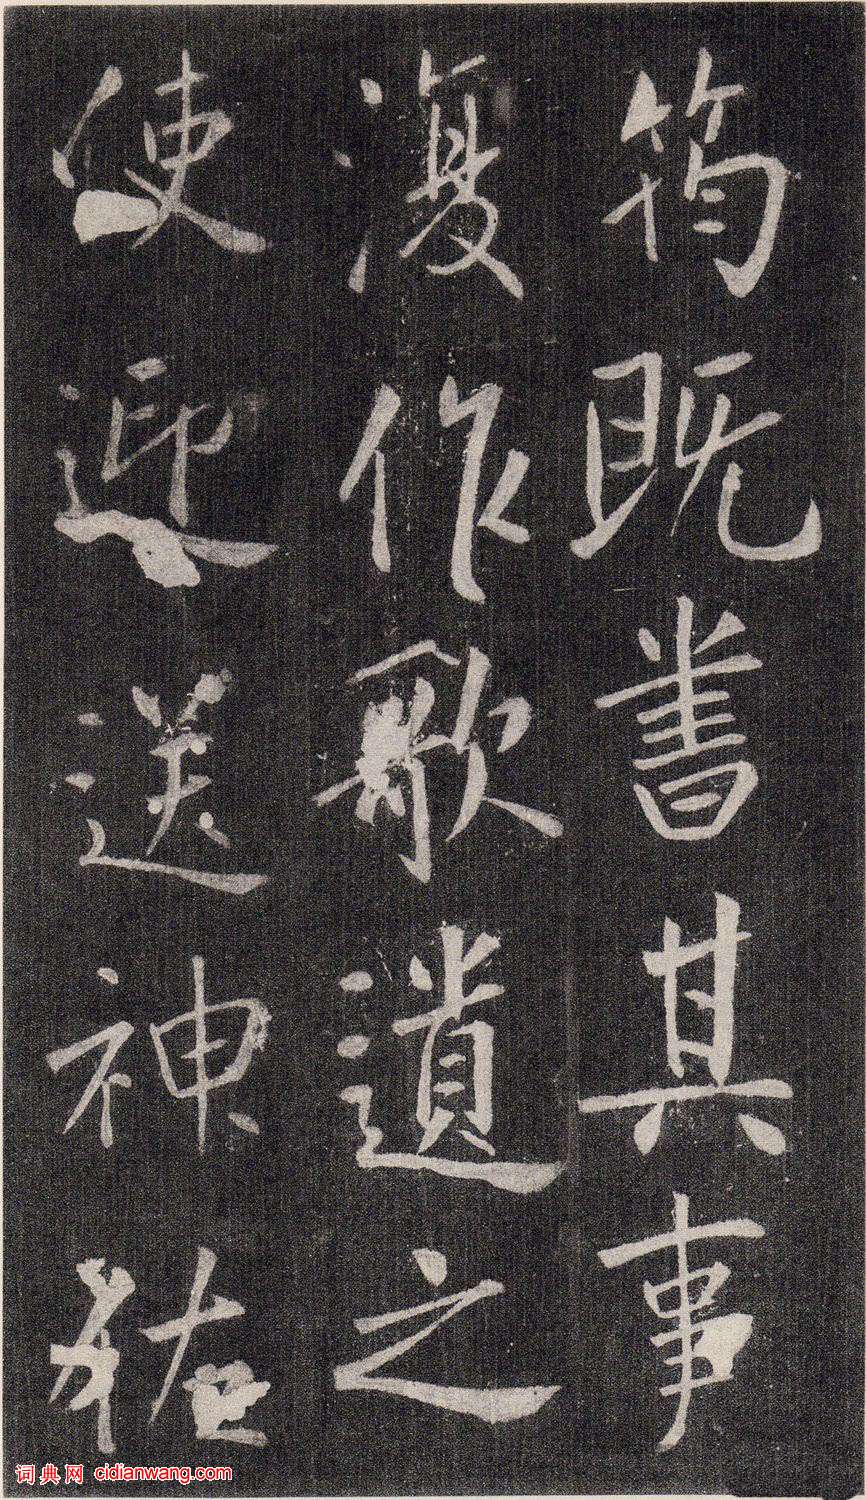 筠既書其事
復作歌遺之
使迎送神祐
词典网 cidianwang.com